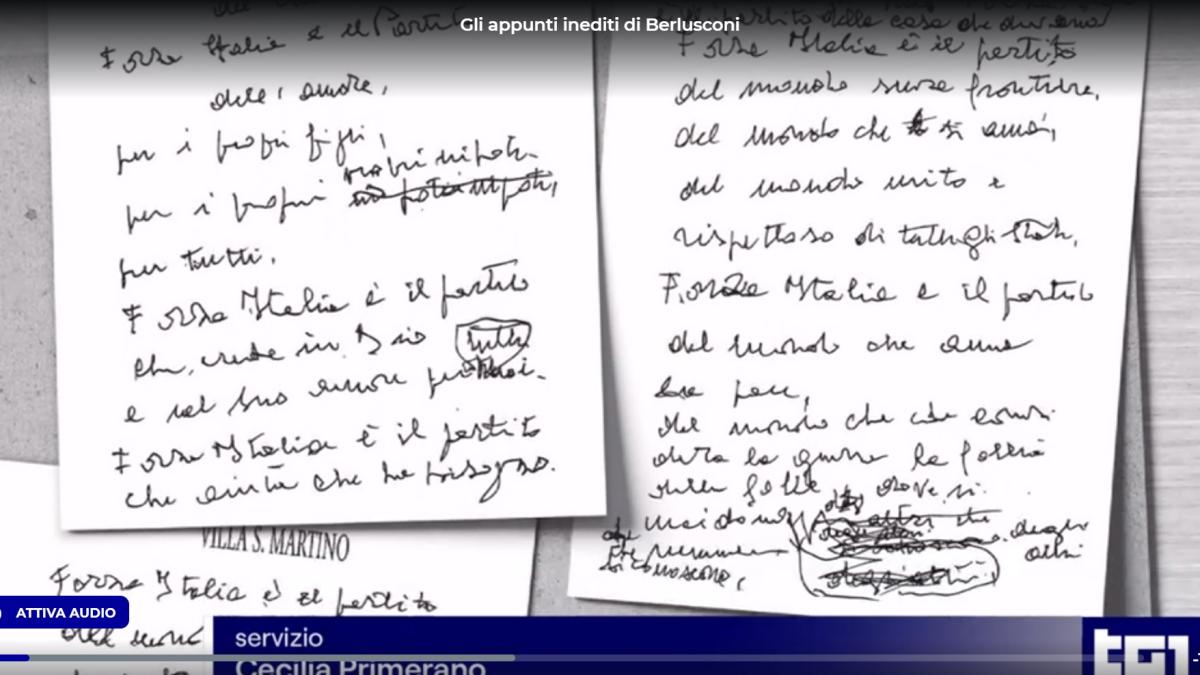 Gli appunti inediti di Berlusconi
Forza Italia è il Partito
dell'amore,
per i propri figli,
propri nipoti
per i propri
per tutti.
Forza Italia è il partito
che crede in Dio
e nel suo amore per tutti noi.
Forza Italia è il partito
che aiuta chi ha bisogno.
Forza Italia è il partito
del mondo senza frontiere,
del mondo che si ama,
del mondo unito e
rispettoso di tutti gli Stati,
Forza Italia è il partito
del mondo che ama
la pace,
del mondo che
considera la guerra la follia
delle follie, dove si
uccidono
che degli
altri
si conoscono,
VILLA S. MARTINO
Forza Italia è il partito
del mondo
ATTIVA AUDIO
servizio
Cecilia Primerano
tg1